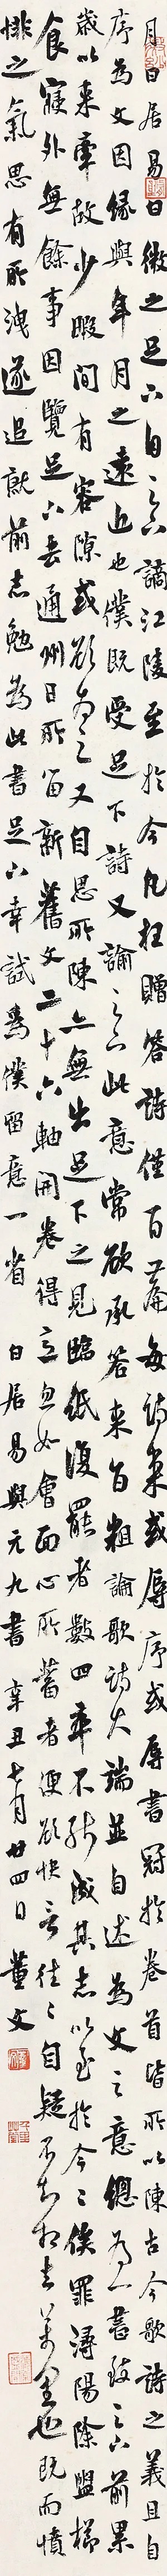 月日居易白微之足下自足下謫江陵至於今凡枉贈答詩僅百篇每詩来或辱序或辱書冠於卷首皆所以陳古今歌詩之義且自
序為文因緣與年月之遠近也僕既受足下詩又諭足下此意常欲承答来旨粗論歌詩大端並自述為文之意總為一書致足下前累
歲以来牽故少暇間有容隙或欲為之又自思所陳亦無出足下之見臨紙復罷者數四卒不能成其志以至於今々俟罪潯陽除盥櫛
食寢外無餘事因覽足下去通州日所留新舊文二十六軸開卷得意忽如會面心所蓄者便欲快言往々自疑不知相去萬里也既而憤
悱之氣思有所洩遂追就前志勉為此書足下幸試為僕留意一省 白居易與元九書 辛丑七月廿四日 董文